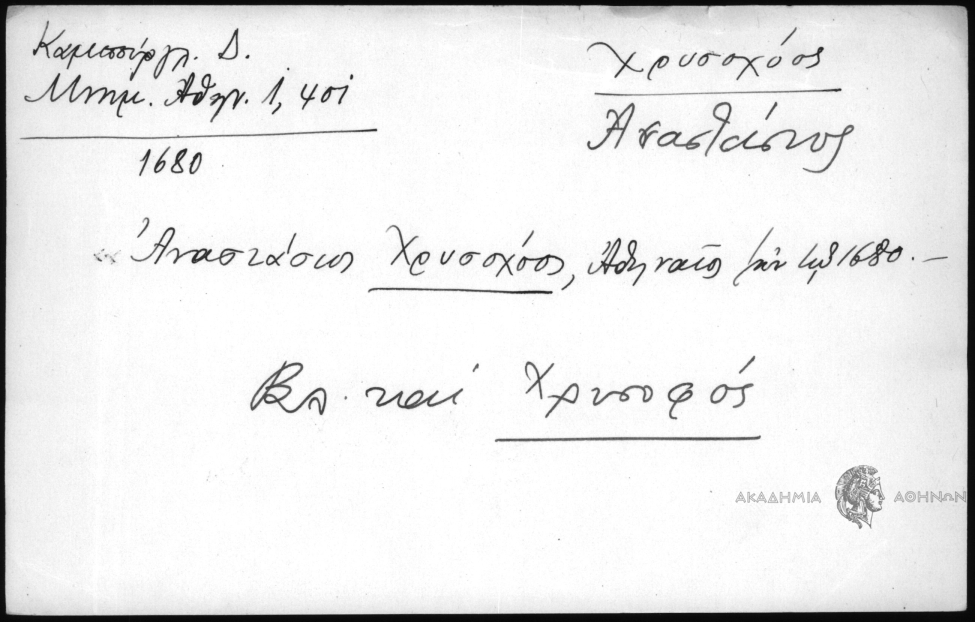 Καμπούρογλ. Δ.
Μνημ. Αθην. 1, 401
1680
Χρυσοχόος
Αναστάσιος
Ἀναστάσιος Χρυσοχόος, Ἀθηναῖος 1680. –
Βλ. καί Χρυσοφός
ΑΚΑΔΗΜΙΑ ΑΘΗΝΩΝ